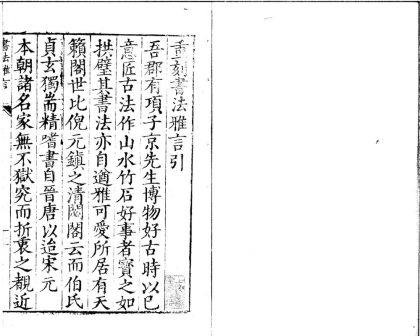 重刻書法雅言引
吾郡有項子京先生博物好古時以已
意匠古法作山水竹石好事者寶之如
拱璧其書法亦自遒雅可愛所居有天
籟閣世比倪元鎮之清閟閣云而伯氏
貞玄獨耑精嗜書自晉唐以迨宋元
本朝諸名家無不獄究而折衷之覩近
書法雅言